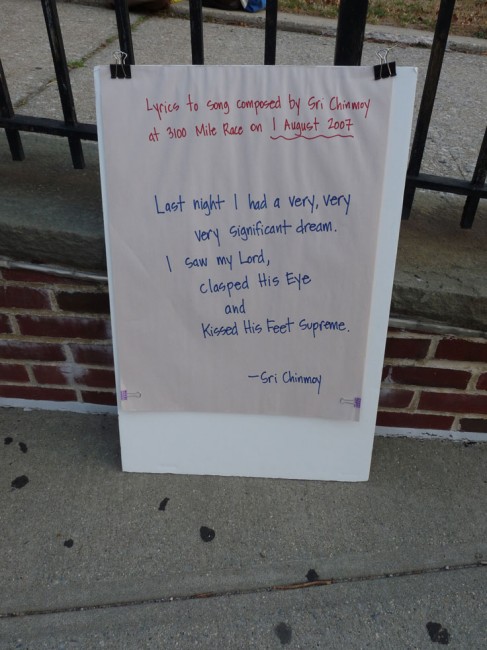 Lyrics to song composed by Sri Chinmoy
at 3100 Mile Race on 1 August 2007
Last night I had a very, very
very significant dream.
I saw my Lord,
clasped His Eye
and
Kissed His Feet Supreme.
—Sri Chinmoy